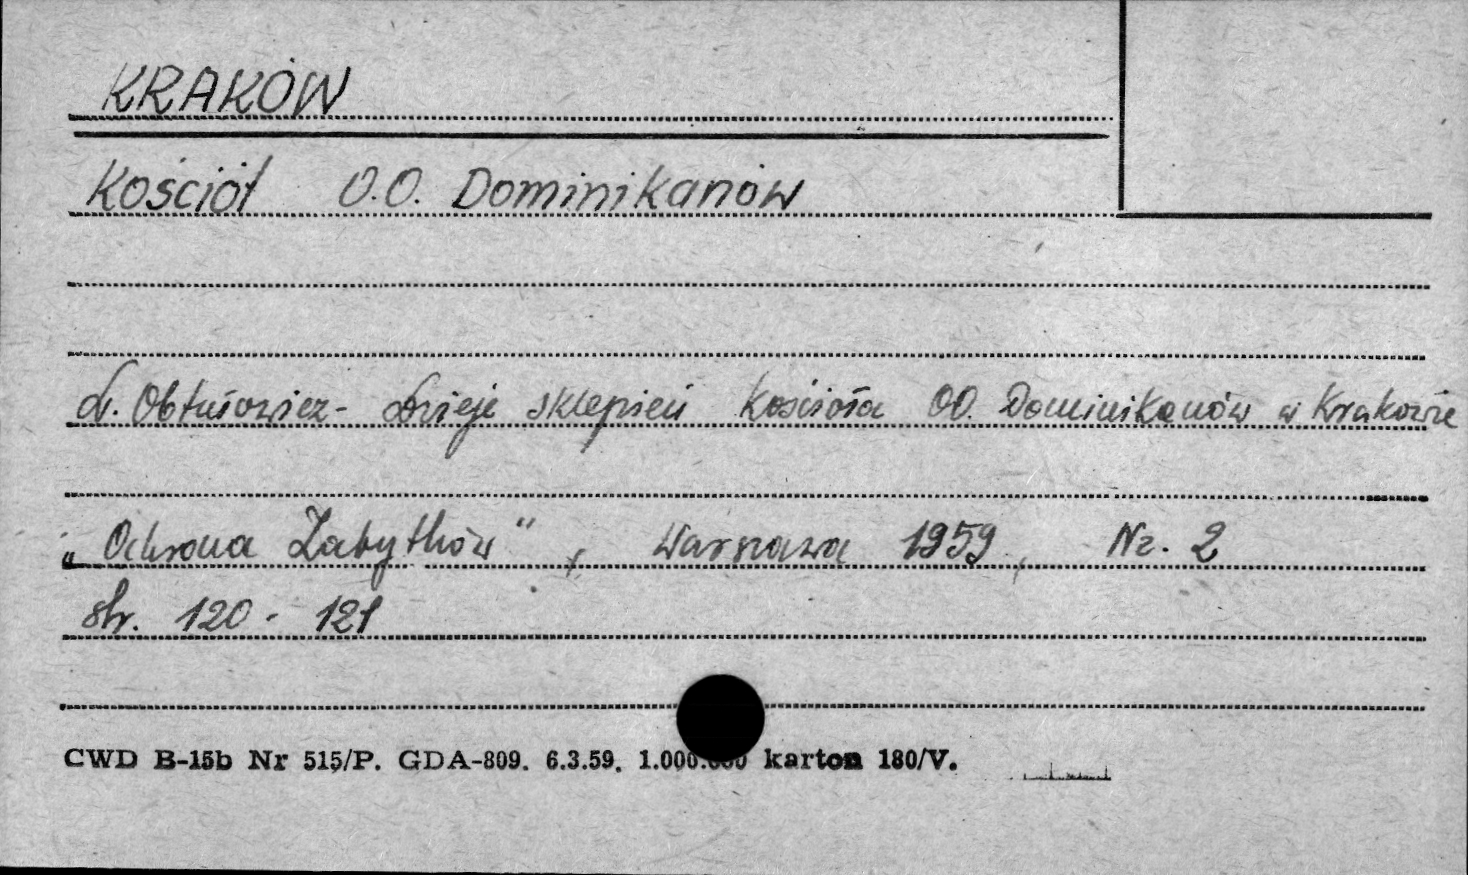 KRAKÓW
Kościół O.O. Dominikanów
L. Obtułowicz - Dzieje sklepień Kościoła OO. Dominikanów w Krakowie
„Ochrona Zabytków", Warszawa 1959, Nr. 2
str. 120 - 121
CWD B-15b Nr 515/P. GDA-809. 6.3.59. 1.000.000 karton 180/V.